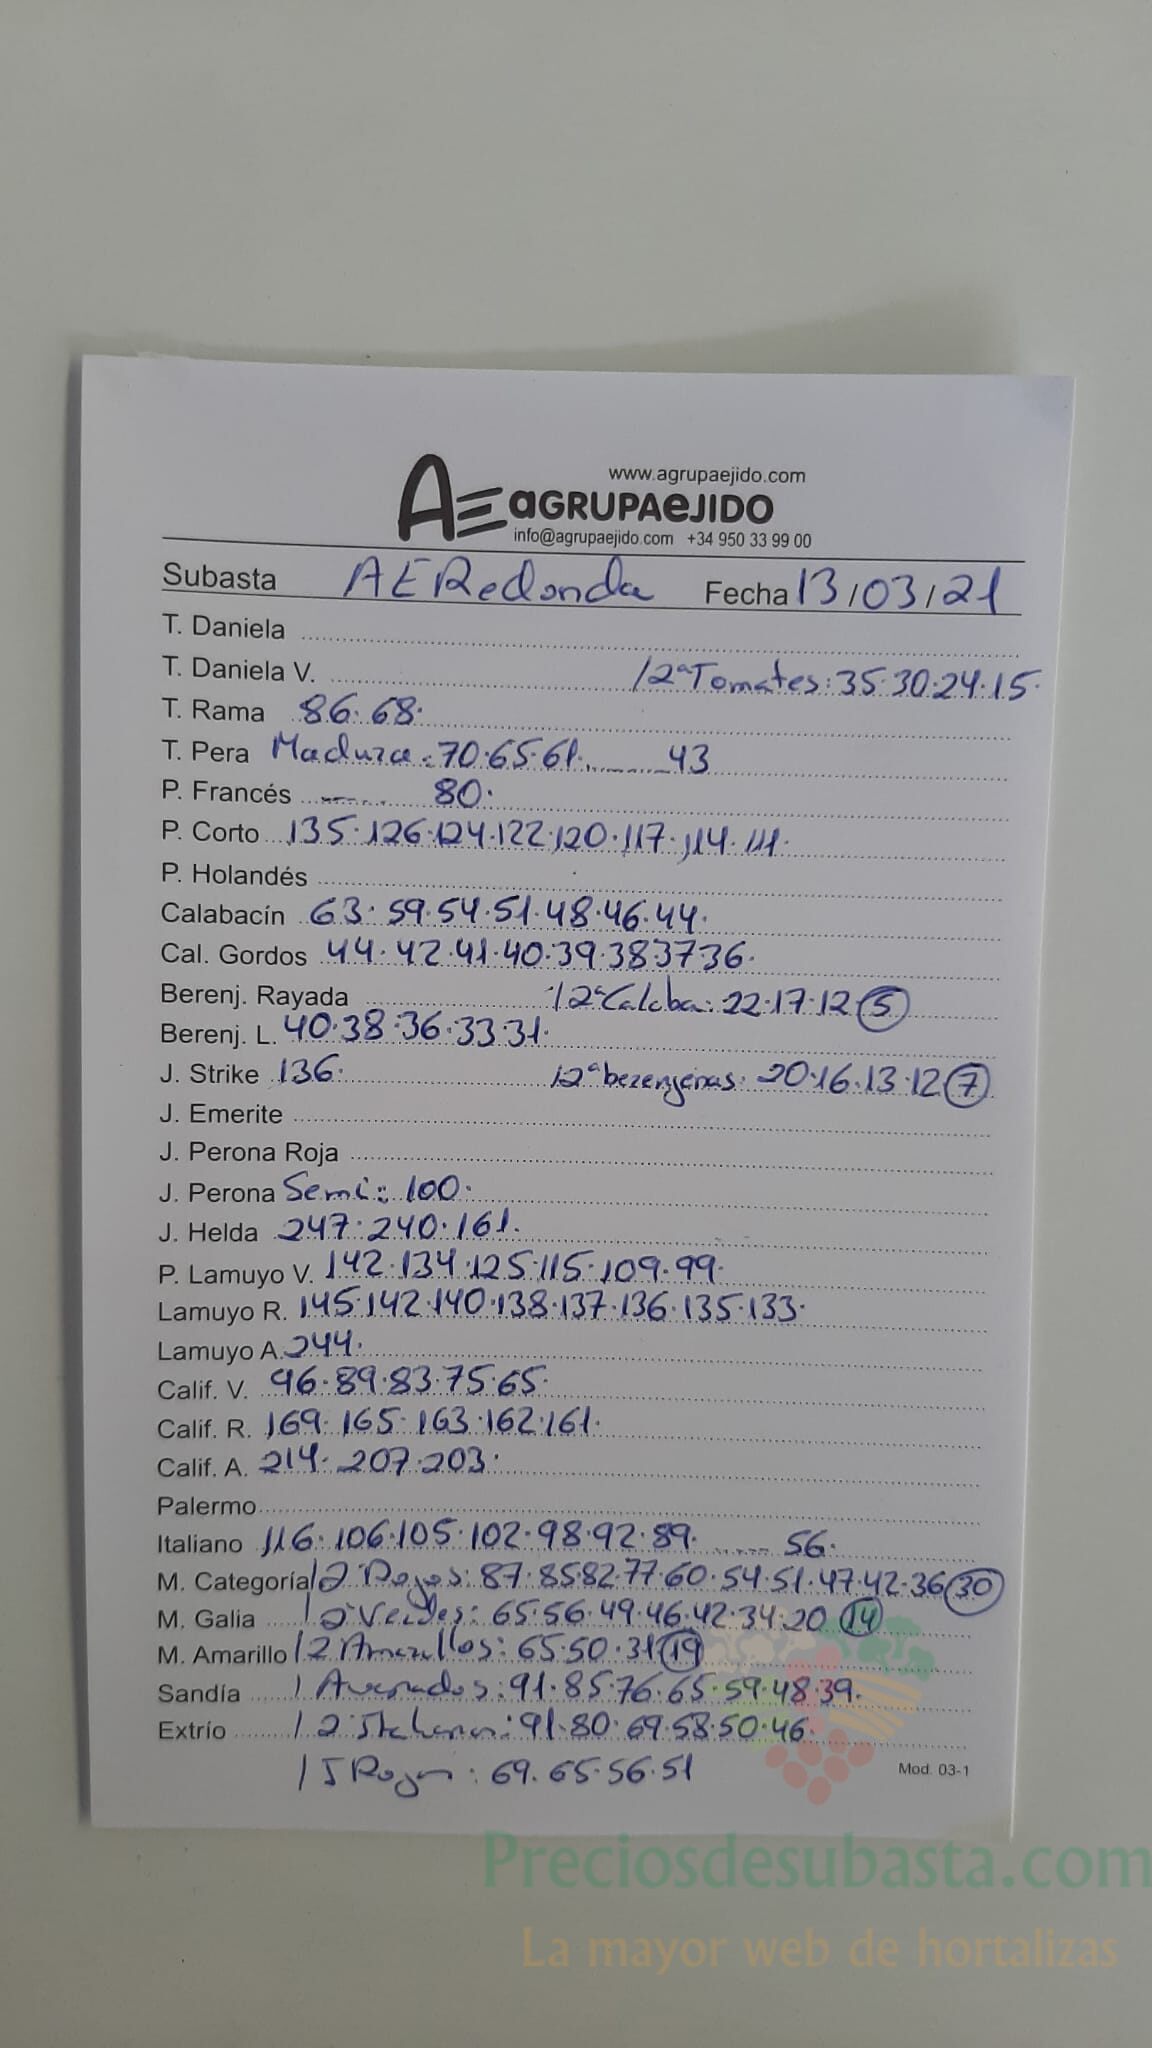 www.agrupaejido.com
AE aGRUPAeJIDO
info@agrupaejido.com +34 950 33 99 00
Subasta AERedonda Fecha 13/03/21
T. Daniela
T. Daniela V. /2ªTomates: 35.30.24.15.
T. Rama 86.68.
T. Pera Madura: 70.65.61......43
P. Francés ...... 80.
P. Corto 135.126.124.122.120.117.114.111.
P. Holandés
Calabacín 63.59.54.51.48.46.44.
Cal. Gordos 44.42.41.40.39.38.37.36.
Berenj. Rayada /2ªCalaba: 22.17.12 (5)
Berenj. L. 40.38.36.33.31.
J. Strike 136. /2ªberenjenas: 20.16.13.12 (7)
J. Emerite
J. Perona Roja
J. Perona Semi: 100.
J. Helda 247.240.161.
P. Lamuyo V. 142.134.125.115.109.99.
Lamuyo R. 145.142.140.138.137.136.135.133.
Lamuyo A. 244.
Calif. V. 96.89.83.75.65.
Calif. R. 169.165.163.162.161.
Calif. A. 214.207.203.
Palermo
Italiano 116.106.105.102.98.92.89. ...... 56.
M. Categoría /2ªRojos: 87.85.82.77.60.54.51.47.42.36 (30)
M. Galia /2ªVerdes: 65.56.49.46.42.34.20 (14)
M. Amarillo /2 Amarillos: 65.50.31 (19)
Sandía / Averados: 91.85.76.65.59.48.39.
Extrío /2ª Italianos: 91.80.69.58.50.46.
/ I Rojos: 69.65.56.51
Mod. 03-1
Preciosdesubasta.com
La mayor web de hortalizas